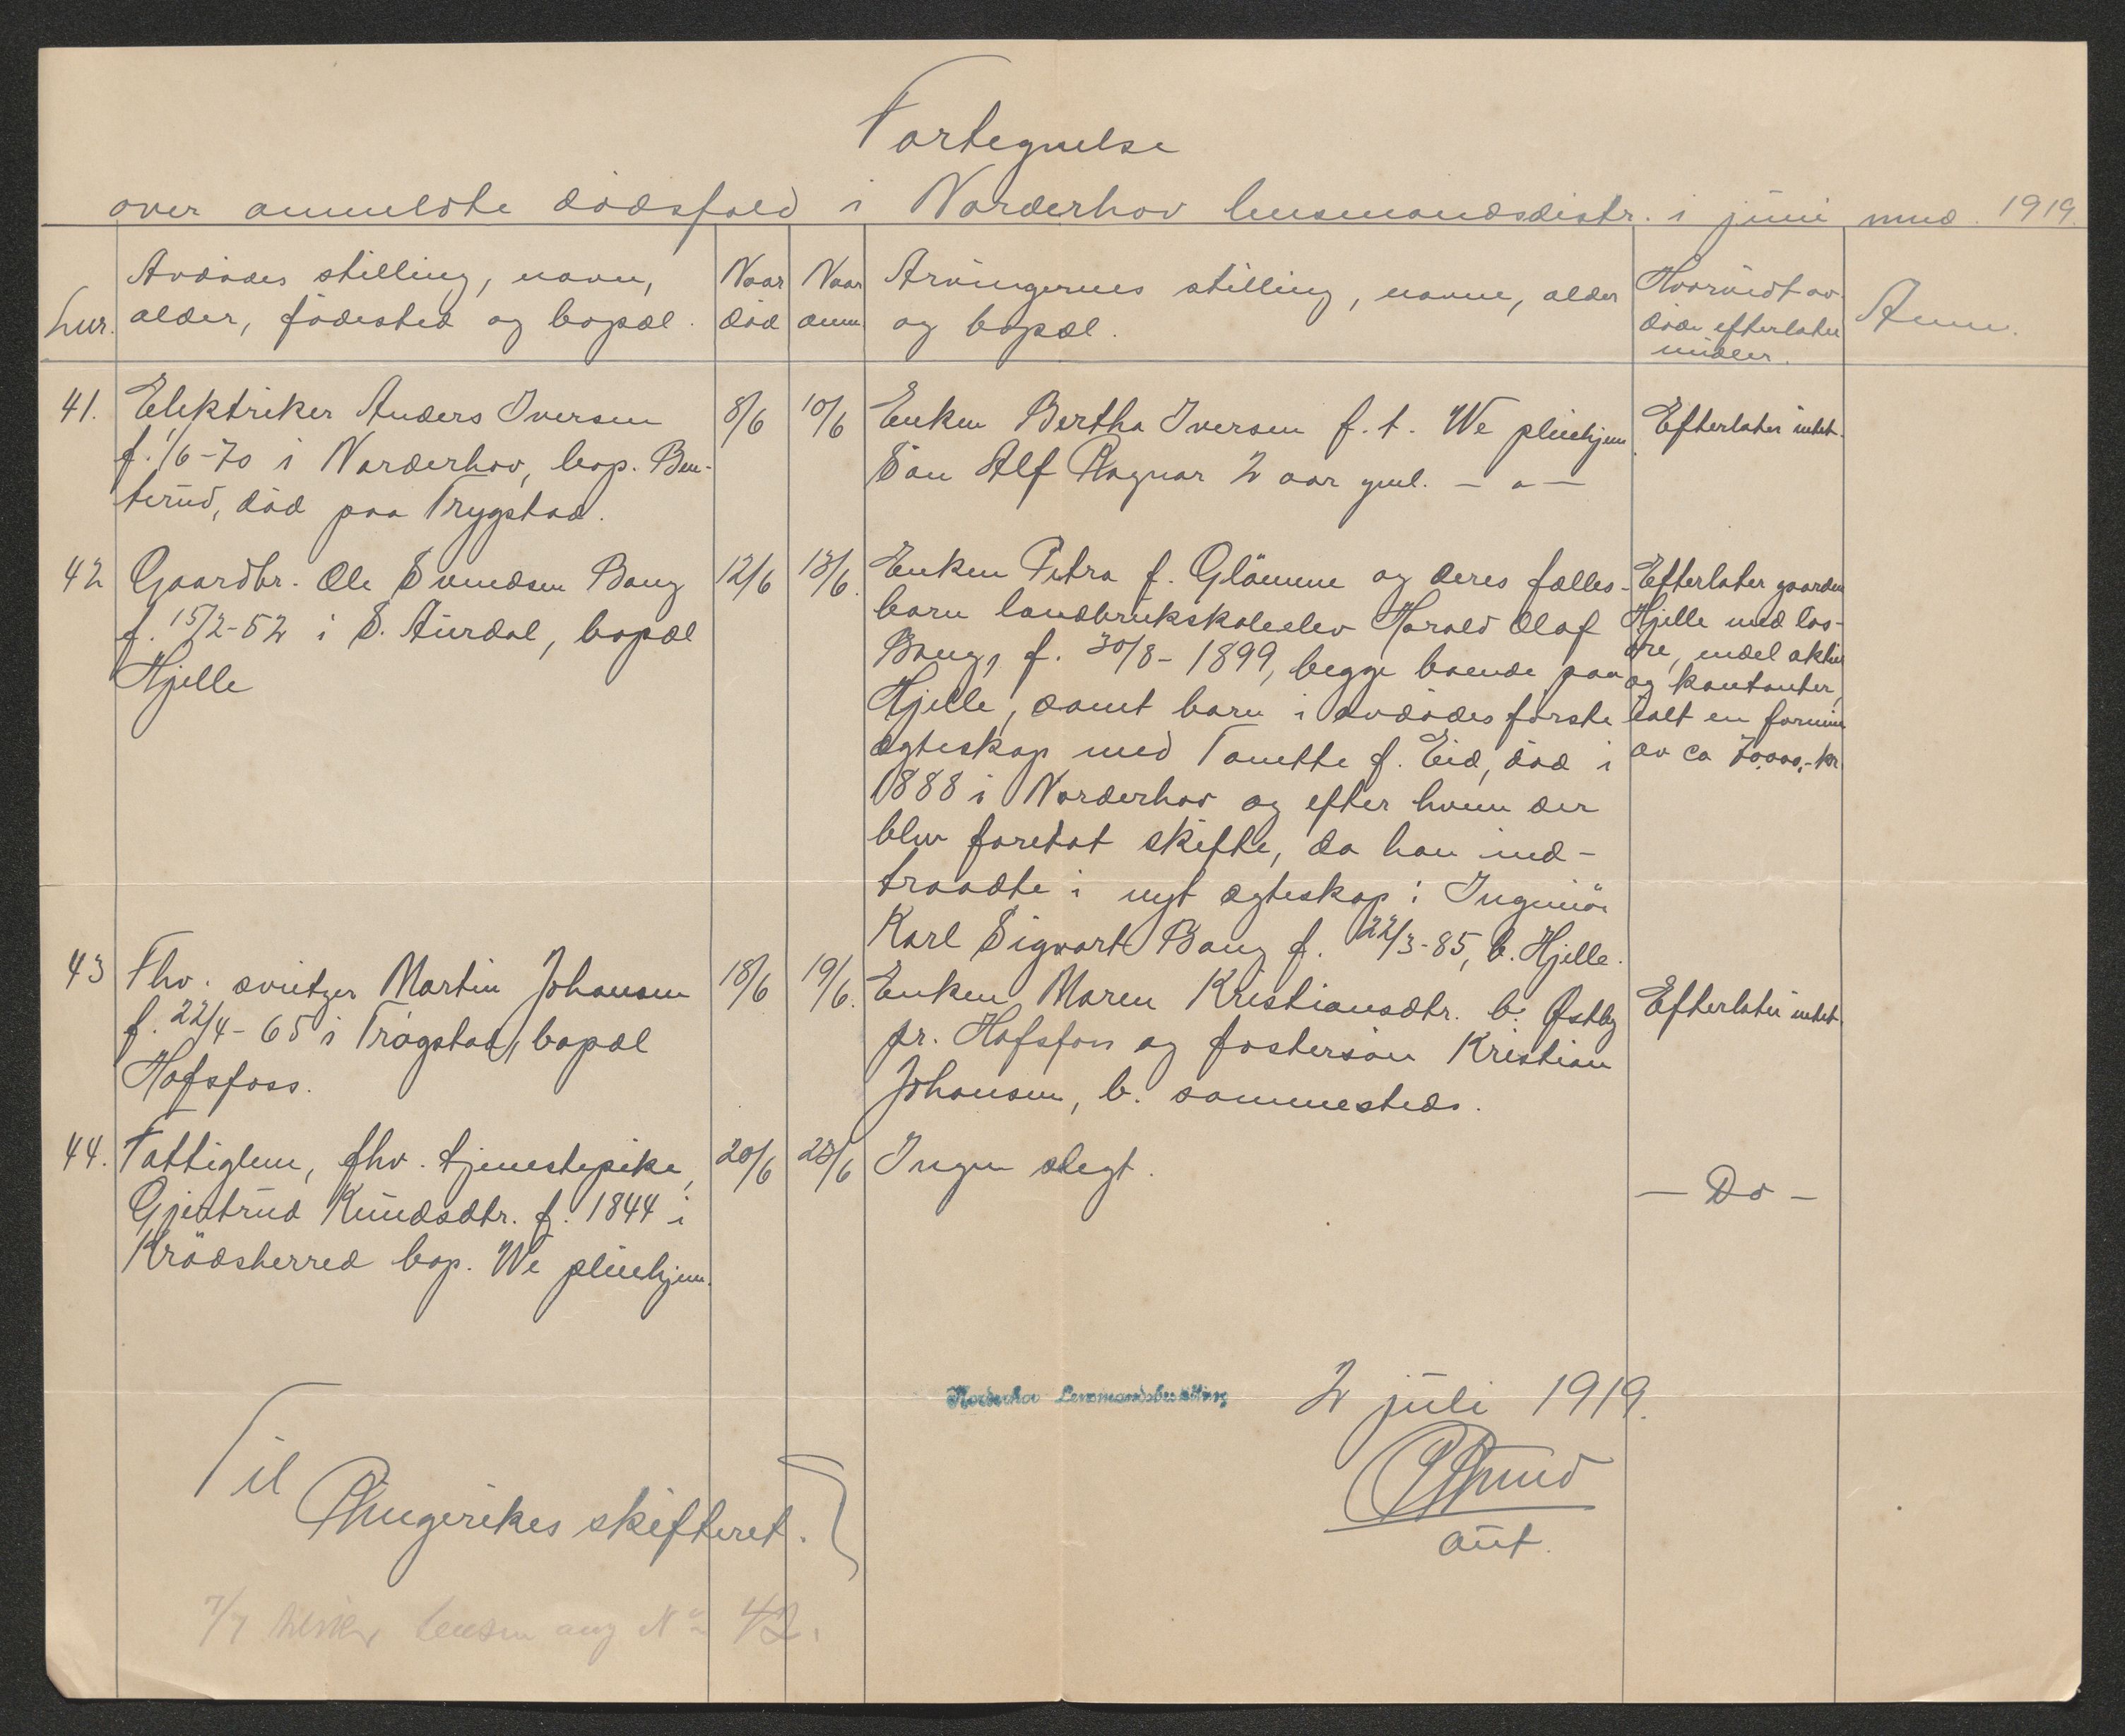 Fortegnelse
over anmeldte dödsfald i Norderhov lensmandsdistr. i juni mnd. 1919.
Lnr.
Avdödes stilling, navn,
alder, födested og bopæl.
Naar
död
Naar
anm.
Arvingernes stilling, navne, alder
og bopæl.
Hvorvidt av-
döde efterlater
midler.
Anm.
41.
Elektriker Anders Iversen
f. 1/6-70 i Norderhov, bop. Ben-
terud, död paa Trygstad.
8/6
10/6
Enken Bertha Iversen f. t. We pleiehjem
Sön Alf Ragnar 2 aar gml. — " —
Efterlater intet.
42
Gaardbr. Ole Svendsen Bang
f. 15/2-52 i S. Aurdal, bopæl
Hjelle
12/6
13/6.
Enken Petra f. Glömme og deres fælles-
barn landbrukskoleelev Harald Olaf
Bang, f. 30/8-1899, begge boende paa
Hjelle, samt barn i avdödes förste
ægteskap med Tonette f. Eid, död i
1888 i Norderhov og efter hvem der
blev foretat skifte, da han ind-
traadte i nyt ægteskap: Ingeniör
Karl Sigvart Bang f. 22/3-85, b. Hjelle.
Efterlater gaarden
Hjelle med lös-
öre, endel aktier
og kontanter,
ialt en formue
av ca 70.000,- kr
43
Fhv. sveitzer Martin Johansen
f. 22/4-65 i Trögstad, bopæl
Hofsfoss.
18/6
19/6.
Enken Maren Kristiansdtr. b. Østby
pr. Hofsfoss og fostersön Kristian
Johansen, b. sammesteds.
Efterlater intet.
44.
Fattiglem, fhv. tjenestepike,
Gjertrud Knudsdtr. f. 1844 i
Krödsherred bop. We pleiehjem.
20/6
23/6
Ingen slegt.
— Do —
Norderhov Lensmandsbestilling
2 juli 1919.
aut.
Til
Ringerikes skifteret.
7/7 lensm ang No 42.